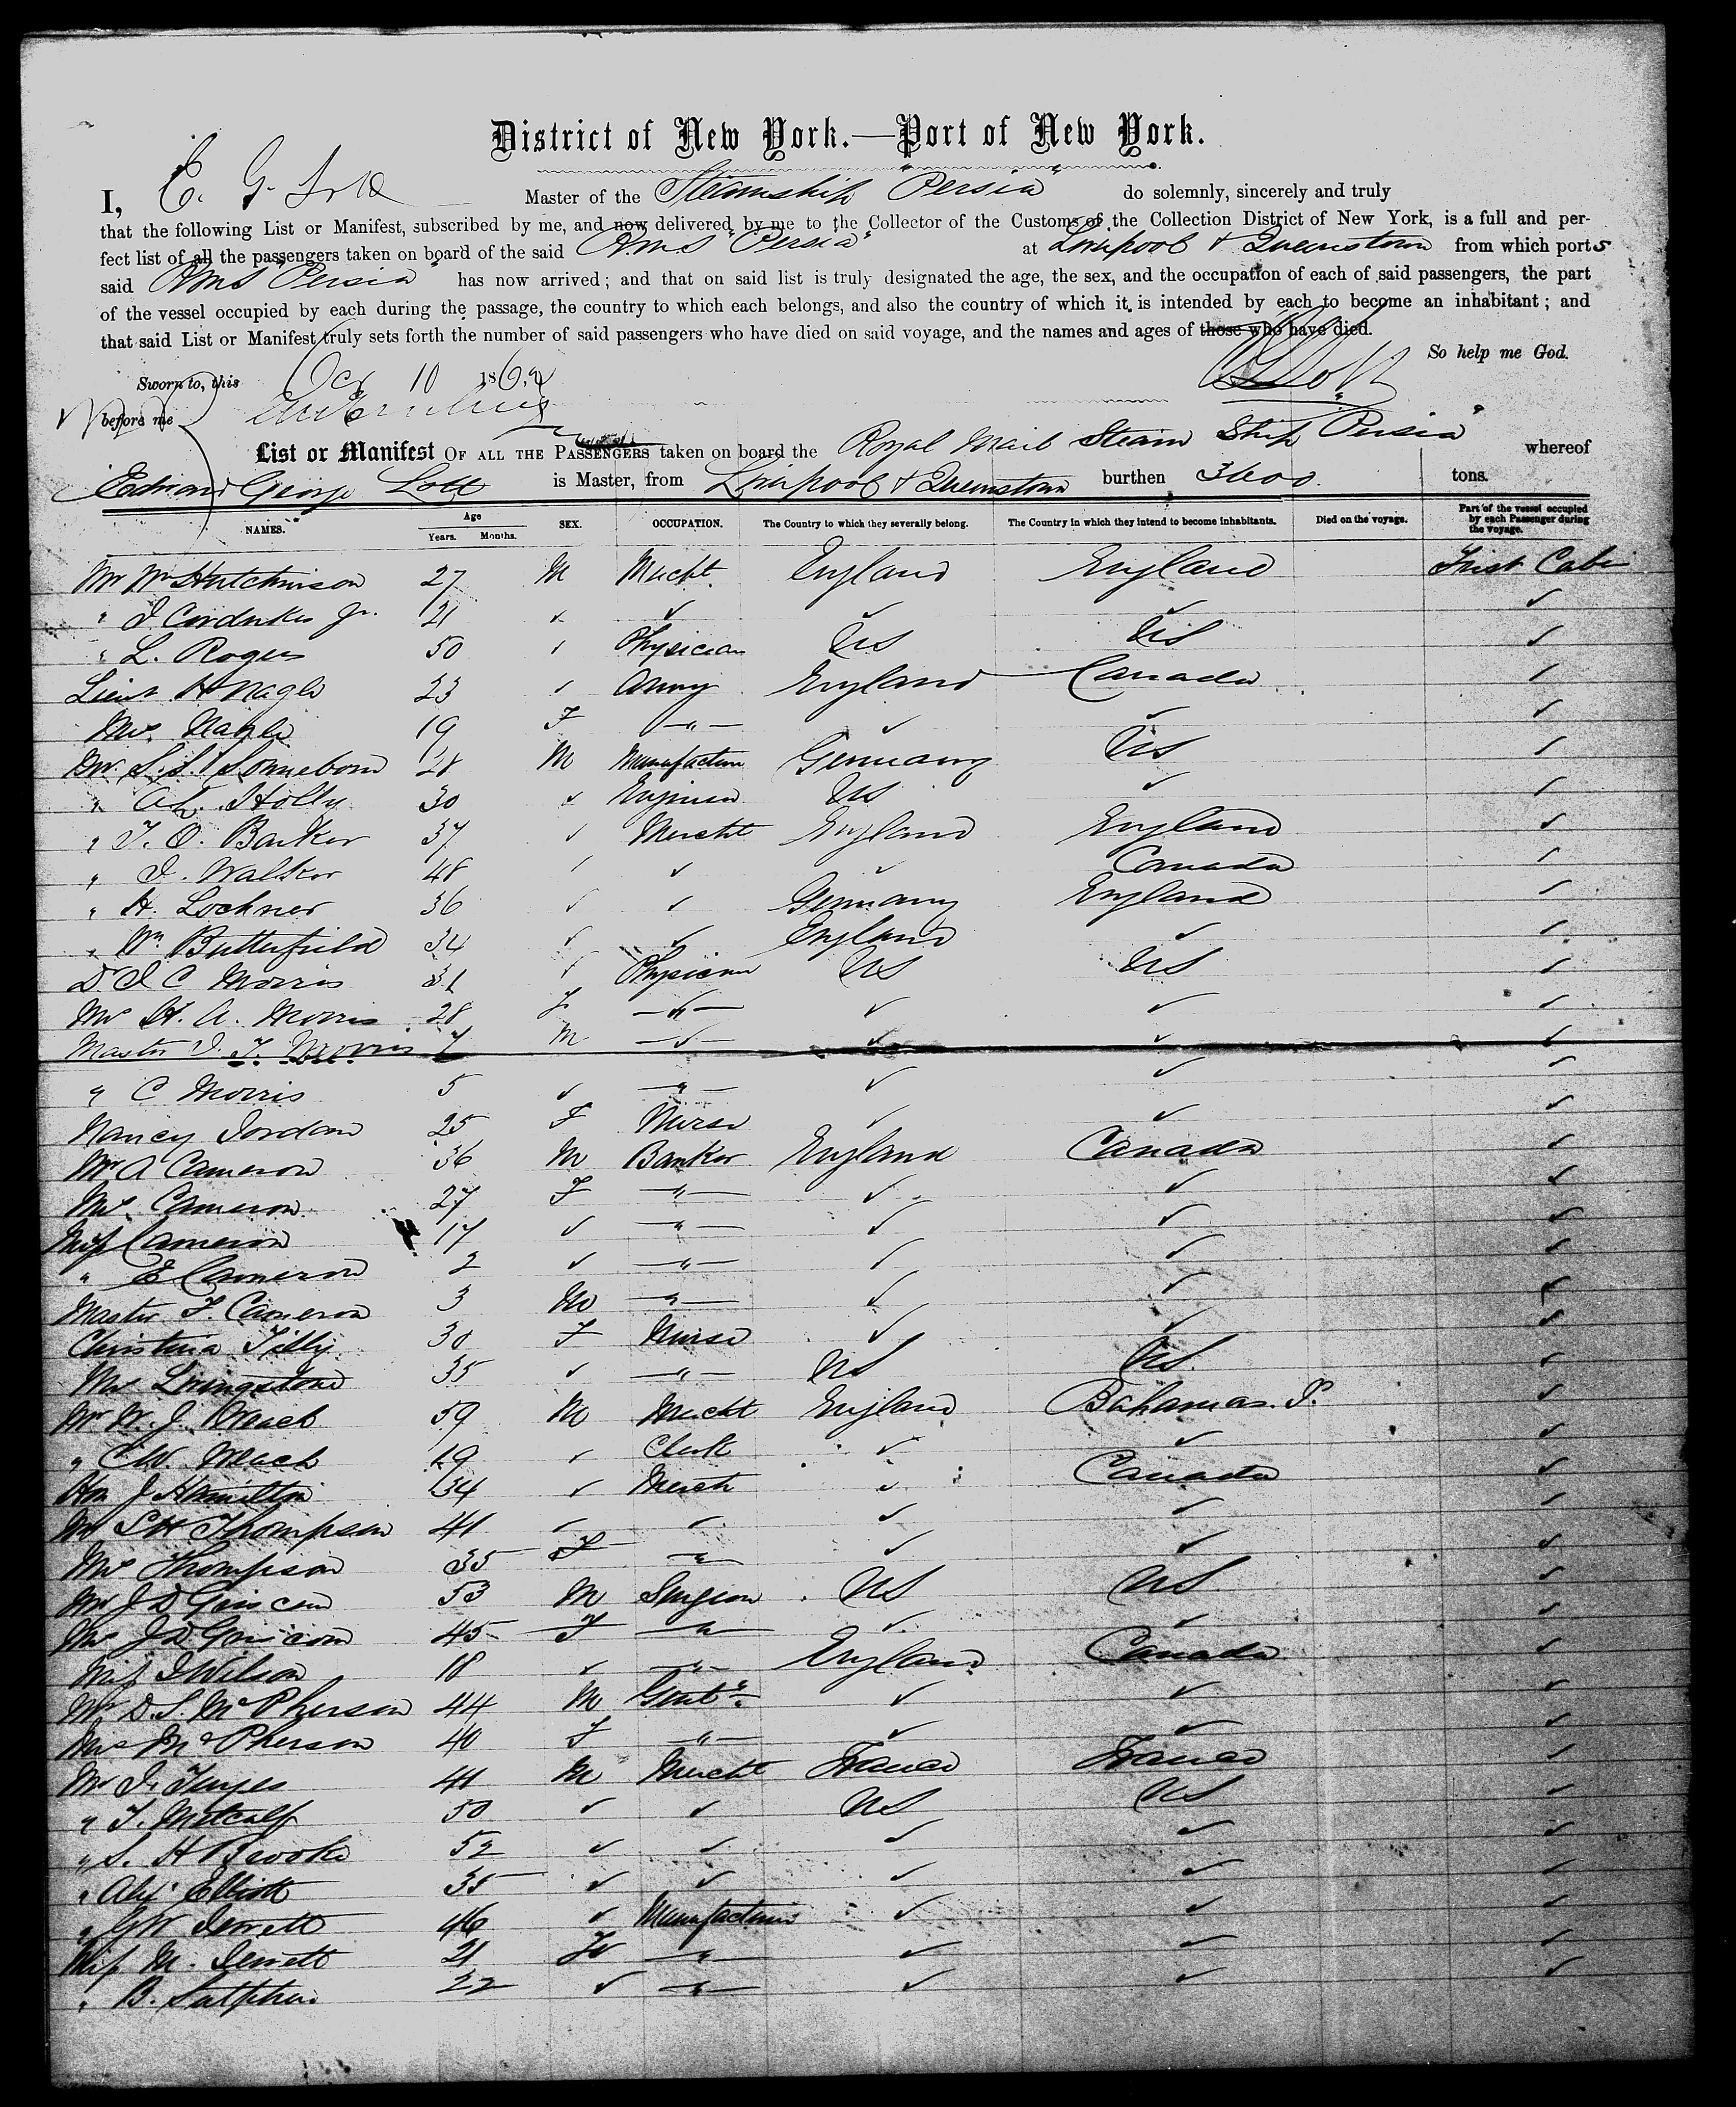 District of New York.—Port of New York.
I, E. G. Lott Master of the Steamship "Persia" do solemnly, sincerely and truly
that the following List or Manifest, subscribed by me, and now delivered by me to the Collector of the Customs of the Collection District of New York, is a full and per-
fect list of all the passengers taken on board of the said R.M.S "Persia" at Liverpool & Queenstown from which ports
said RMS "Persia" has now arrived; and that on said list is truly designated the age, the sex, and the occupation of each of said passengers, the part
of the vessel occupied by each during the passage, the country to which each belongs, and also the country of which it is intended by each to become an inhabitant; and
that said List or Manifest truly sets forth the number of said passengers who have died on said voyage, and the names and ages of those who have died.
So help me God.
Sworn to, this Oct 10 186 EGLott
before me
List or Manifest OF ALL THE PASSENGERS taken on board the Royal Mail Steam Ship "Persia" whereof
Edward George Lott is Master, from Liverpool & Queenstown burthen 3600 tons.
NAMES. Age Years. Months. SEX. OCCUPATION. The Country to which they severally belong. The Country in which they intend to become inhabitants. Died on the voyage. Part of the vessel occupied by each Passenger during the voyage.
Mr Wm Hutchinson 27 M Mercht England England First Cabin
" Jr. 21 ✓ ✓ ✓ ✓ ✓
" L. Rogers 50 ✓ Physician US US ✓
Lieut H Nagle 23 ✓ Army England Canada ✓
Mrs. Nagle 19 F —"— ✓ ✓ ✓
Mr. S. S. Sonneborn 28 M Manufacturer Germany US ✓
" A.L. Holly 30 ✓ Engineer US ✓ ✓
" T. O. Barker 37 ✓ Mercht England England ✓
" J. Walker 48 ✓ ✓ ✓ Canada ✓
" H. Lochner 36 ✓ ✓ Germany England ✓
" Wm Butterfield 34 ✓ ✓ England ✓ ✓
Dr J C Morris 31 ✓ Physician US US ✓
Mrs H. A. Morris 28 F —"— ✓ ✓ ✓
Master J. T. Morris 7 M —"— ✓ ✓ ✓
" C Morris 5 ✓ —"— ✓ ✓ ✓
Nancy Jordan 25 F Nurse ✓ ✓ ✓
Mr A Cameron 36 M Banker England Canada ✓
Mrs. Cameron 27 F —"— ✓ ✓ ✓
Miss Cameron 17 ✓ —"— ✓ ✓ ✓
" E Cameron 2 ✓ —"— ✓ ✓ ✓
Master F. Cameron 3 M —"— ✓ ✓ ✓
Christina Tilly 30 F Nurse ✓ ✓ ✓
Mrs Livingstone 35 ✓ —"— US US ✓
Mr W. J. Weech 59 M Mercht England Bahamas I. ✓
" C W. Weech 19 ✓ Clerk ✓ ✓ ✓
Hon J Hamilton 34 ✓ Merch ✓ Canada ✓
Mr S H Thompson 41 ✓ ✓ ✓ ✓ ✓
Mrs Thompson 35 F —"— ✓ ✓ ✓
Mr J D Griscom 53 M Surgeon US US ✓
Mrs J D Griscom 45 F —"— ✓ ✓ ✓
Miss J Wilson 18 ✓ —"— England Canada ✓
Mr D. L. McPherson 44 M Gentn ✓ ✓ ✓
Mrs McPherson 40 F —"— ✓ ✓ ✓
Mr J. 41 M Mercht France France ✓
" T. Metcalf 50 ✓ ✓ US US ✓
" S. H Brooke 52 ✓ ✓ ✓ ✓ ✓
" Alex Elliott 35 ✓ ✓ ✓ ✓ ✓
" G W Jewett 46 ✓ Manufacturer ✓ ✓ ✓
Miss M. Jewett 21 F —"— ✓ ✓ ✓
" B. Sutphen 22 ✓ —"— ✓ ✓ ✓